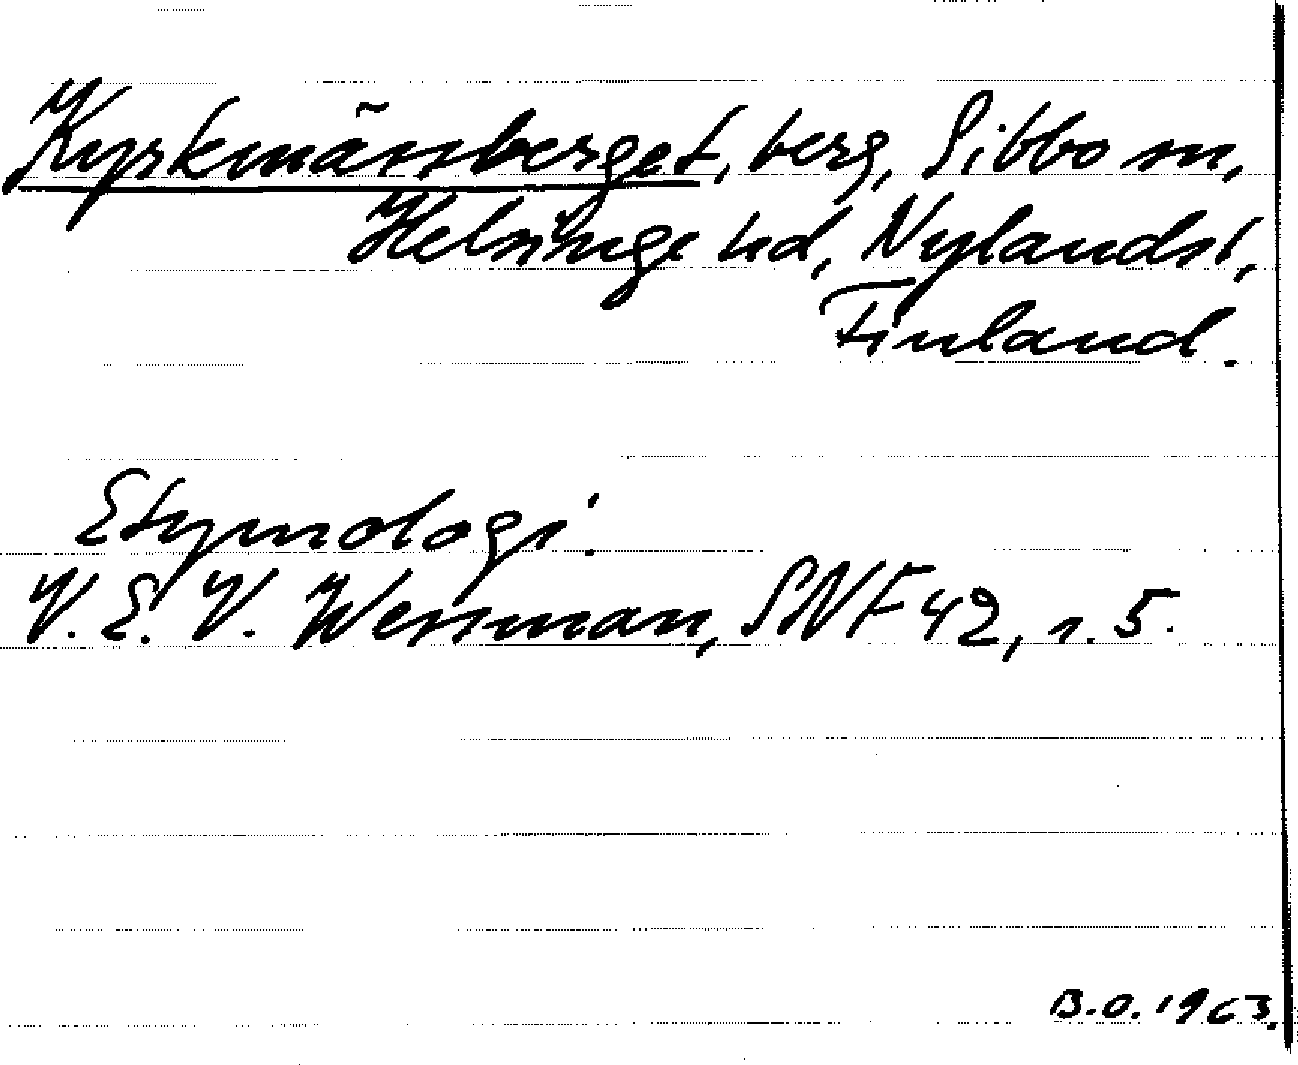 Kyrkmänsberget, berg, Sibbo sn,
Helsinge hd, Nylands l,
Finland.
Etymologi.
V. E. V. Wessman, SNF 42, s. 5.
B.O. 1963.